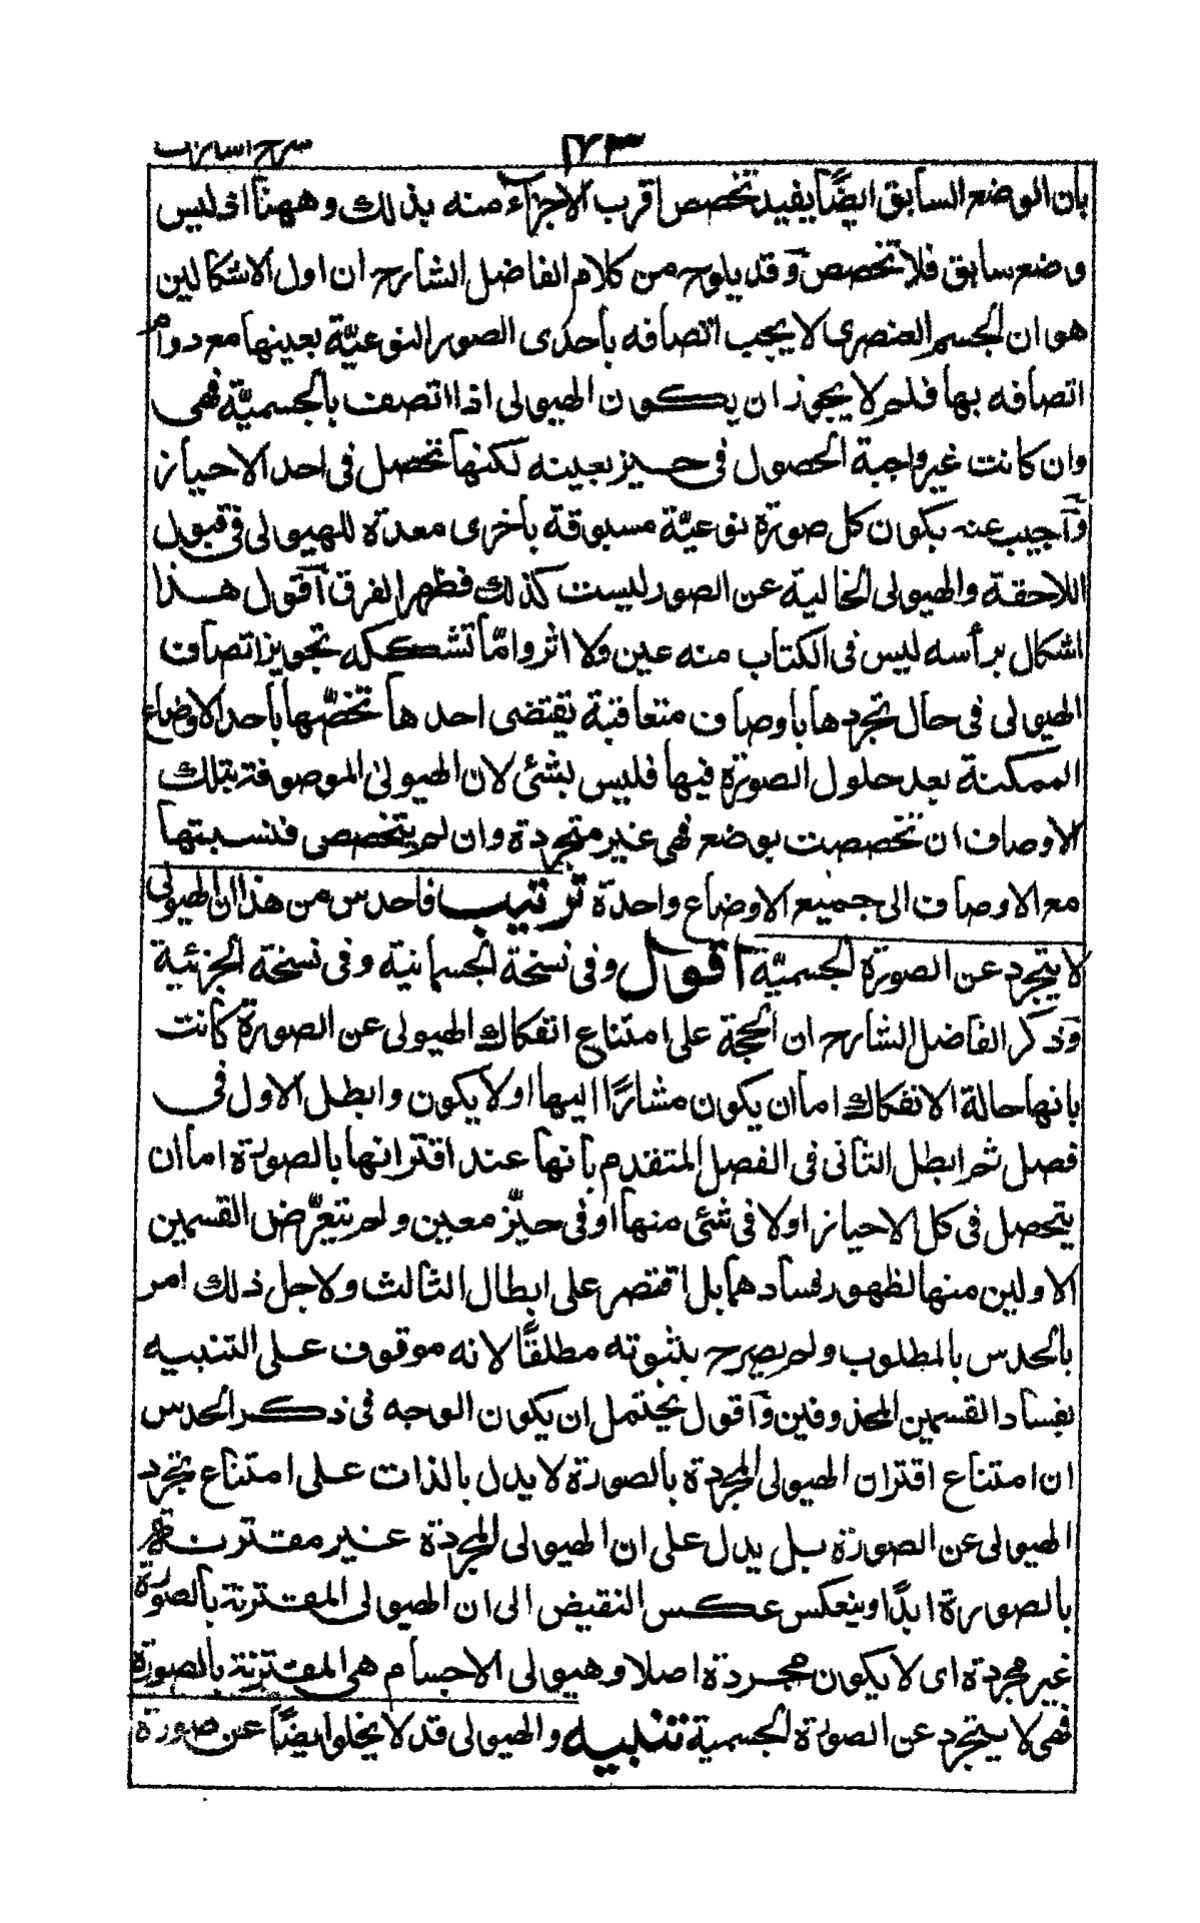 شرح اشارات
۱۷۳
بان الوضع السابق ايضًا يفيد تخصص اقرب الاجزاء منه بذلك وههنا اذ ليس
وضع سابق فلا تخصص وقد يلوح من كلام الفاضل الشارح ان اول الاشكالين
هو ان الجسم العنصرى لا يجب اتصافه باحدى الصور النوعيّة بعينها مع دوام
اتصافه بها فلم لا يجوز ان يكون الهيولى اذا اتصف بالجسميّة فهى
وان كانت غير واجبة الحصول فى حيز بعينه لكنها تحصل فى احد الاحياز
وآجيب عنه بكون كل صورة نوعيّة مسبوقة باخرى معدة للهيولى فى قبول
اللاحقة والهيولى الخالية عن الصور ليست كذلك فظهر الفرق آقول هذا
اشكال برأسه ليس فى الكتاب منه عين ولا اثر وامّا تشككه بتجويز اتصاف
الهيولى فى حال تجردها باوصاف متعاقبة يقتضى احدها تخصّها باحد الاوضاع
الممكنة بعد حلول الصورة فيها فليس بشئ لان الهيولى الموصوفة بتلك
الاوصاف ان تخصصت بوضع فهى غير متجردة وان لم يتخصص فنسبتها
مع الاوصاف الى جميع الاوضاع واحدة ترتيب فاحدس من هذا ان الهيولى
لا يتجرد عن الصورة الجسميّة اقول وفى نسخة الجسمانية وفى نسخة الجزئية
وذكر الفاضل الشارح ان الحجة على امتناع انفكاك الهيولى عن الصورة كانت
بانها حالة الانفكاك اما ان يكون مشارًا اليها او لا يكون وابطل الاول فى
فصل ثم ابطل الثانى فى الفصل المتقدم بانها عند اقترانها بالصورة اما ان
يتحصل فى كل الاحياز او لا فى شئى منها او فى حيّز معين ولم يتعرّض القسمين
الاولين منها لظهور فسادهما بل اقتصر على ابطال الثالث ولاجل ذلك امر
بالحدس بالمطلوب ولم يصرح بثبوته مطلقًا لانه موقوف على التنبيه
بفساد القسمين المحذوفين وآقول يحتمل ان يكون الوجه فى ذكر الحدس
ان امتناع اقتران الهيولى المجردة بالصورة لا يدل بالذات على امتناع تجرد
الهيولى عن الصورة بل يدل على ان الهيولى المجردة غير مقترنة
بالصورة ابدًا وينعكس عكس النقيض الى ان الهيولى المقترنة بالصورة
غير مجردة اى لا يكون مجردة اصلا وهيولى الاجسام هى المقترنة بالصورة
فهى لا يتجرد عن الصورة الجسمية تنبيه والهيولى قد لا يخلوا ايضًا عن صورة